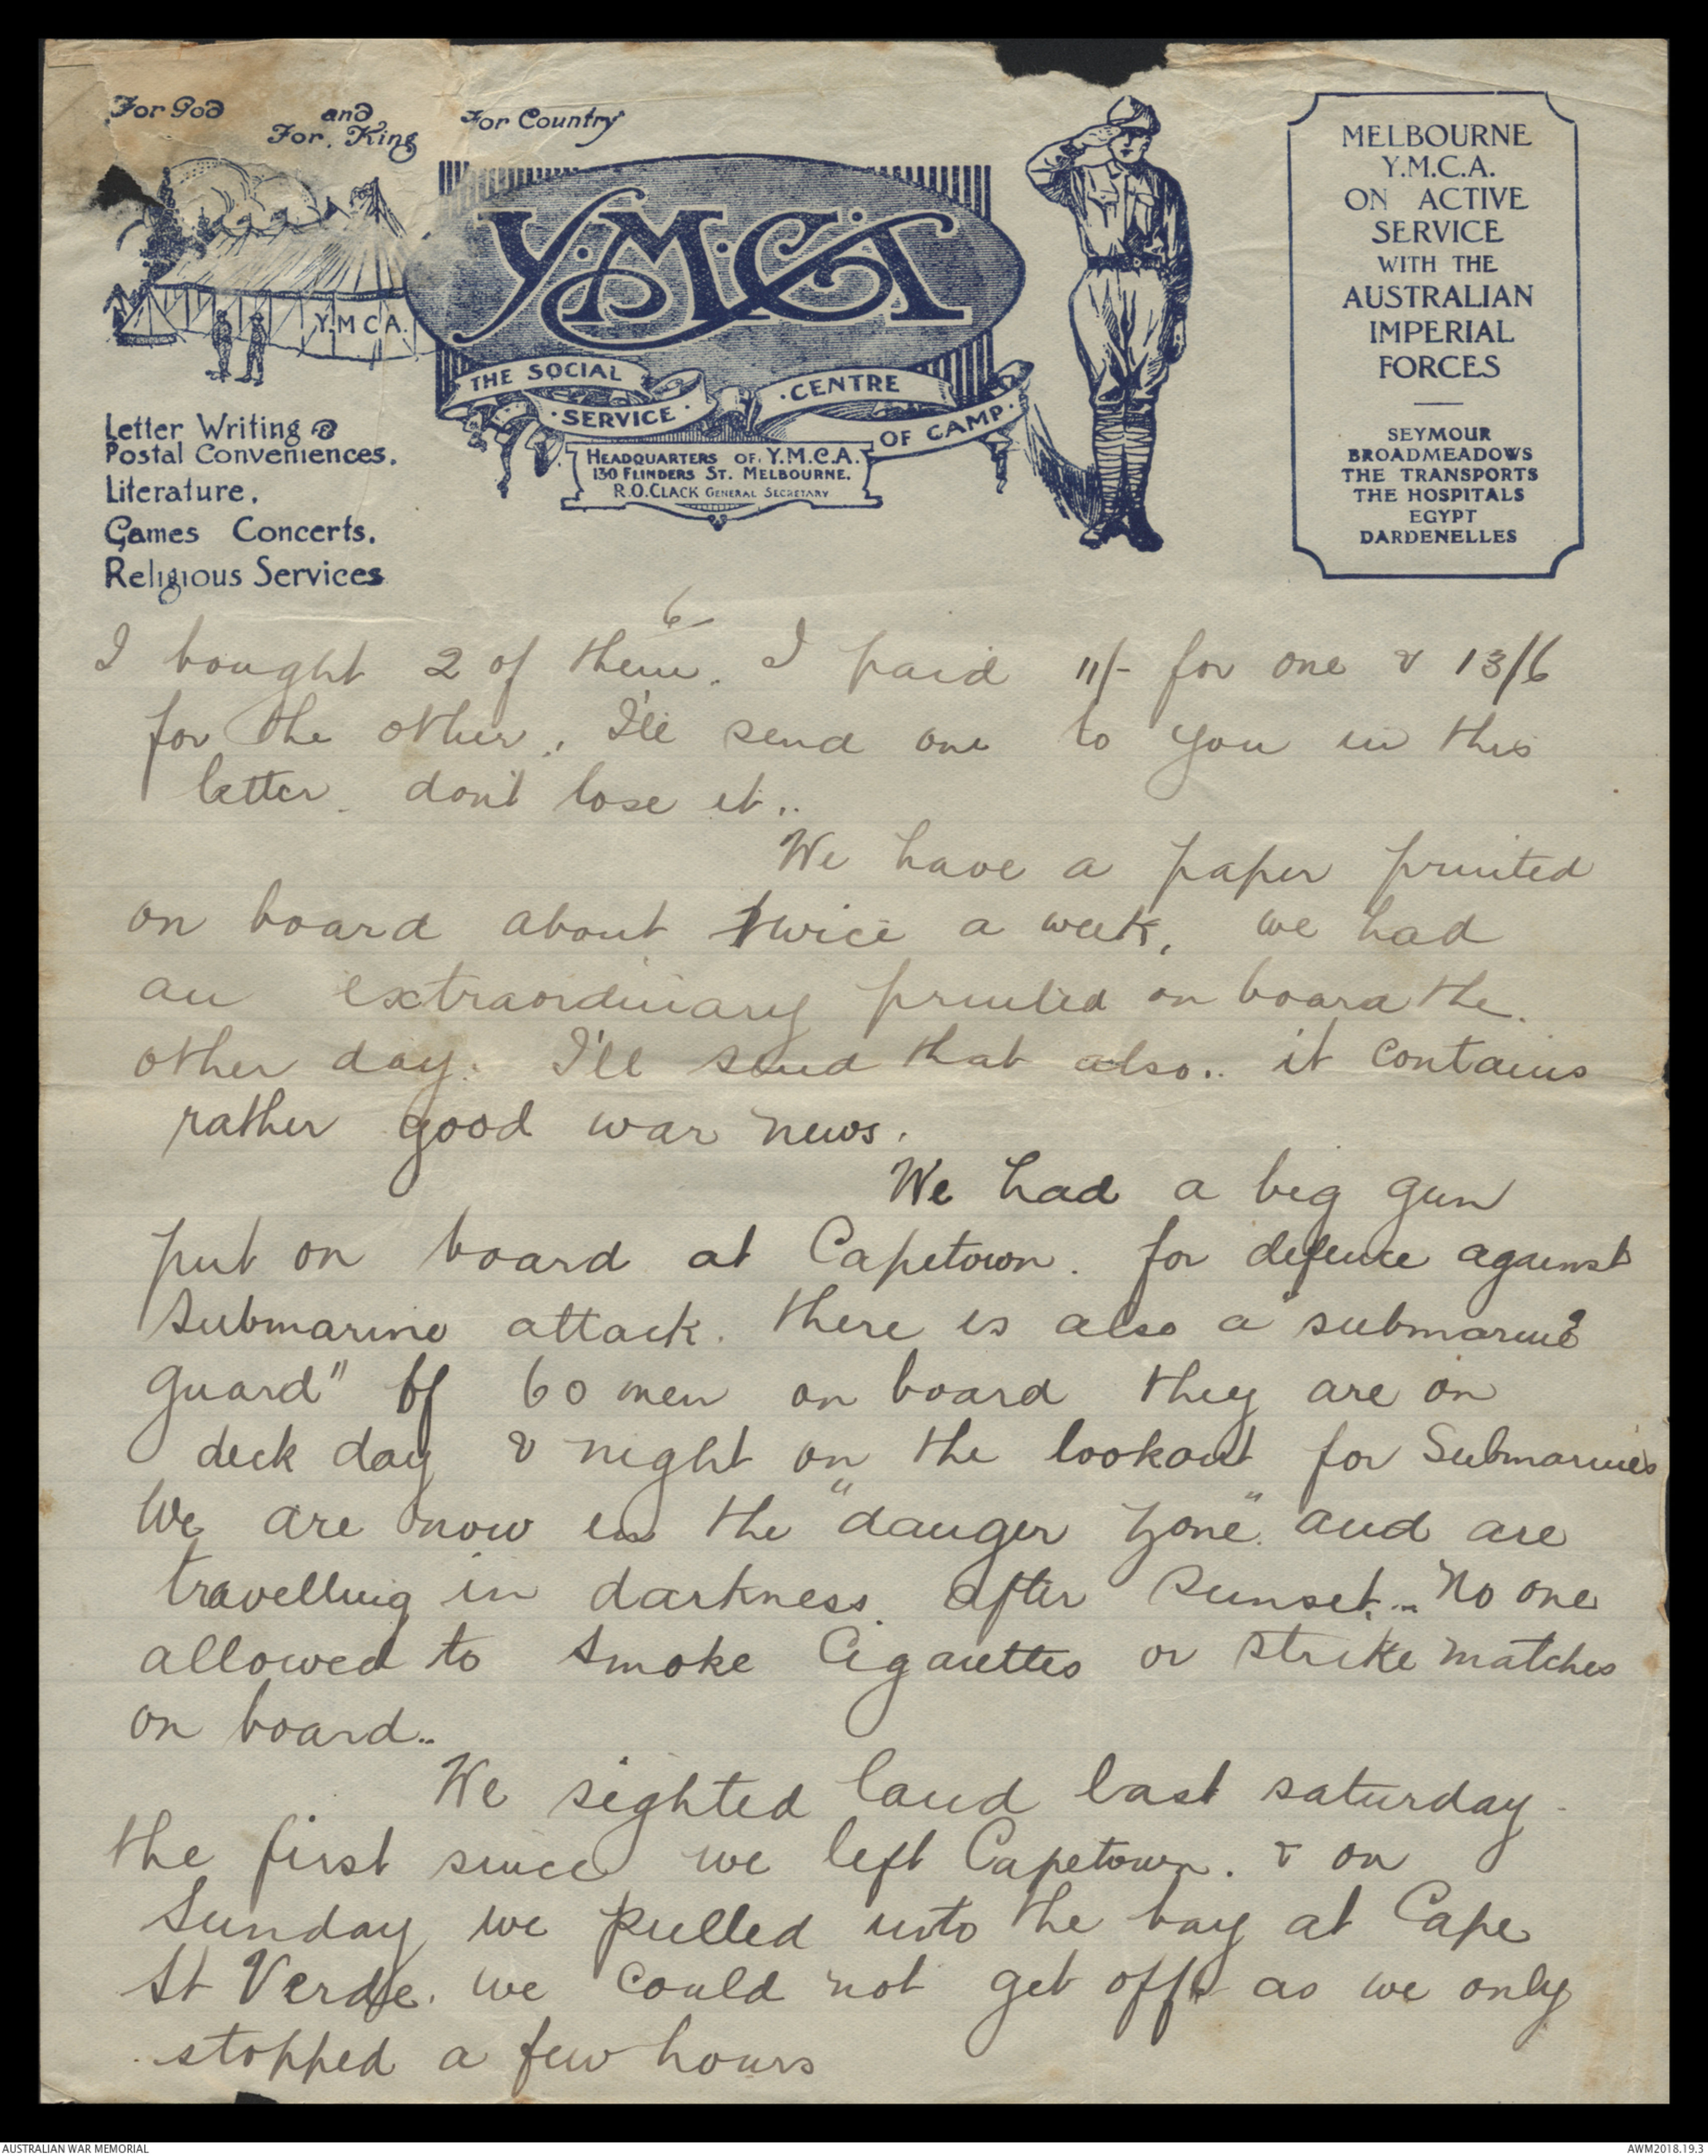 For God and For King For Country
Y.M.C.A.
Y.M.C.A.
THE SOCIAL
· SERVICE ·
· CENTRE
OF CAMP ·
HEADQUARTERS OF Y.M.C.A.
130 FLINDERS ST. MELBOURNE.
R.O.CLACK GENERAL SECRETARY
Letter Writing &
Postal Conveniences.
Literature.
Games Concerts.
Religious Services
MELBOURNE
Y.M.C.A.
ON ACTIVE
SERVICE
WITH THE
AUSTRALIAN
IMPERIAL
FORCES
SEYMOUR
BROADMEADOWS
THE TRANSPORTS
THE HOSPITALS
EGYPT
DARDENELLES
6
I bought 2 of them. I paid 11/- for one & 13/6
for the other., I'll send one to you in this
letter. don't lose it..
We have a paper printed
on board about twice a week, we had
an extraordinary printed on board the.
other day. I'll send that also.. it contains
rather good war news.
We had a big gun
put on board at Capetown. for defence against
submarine attack. there is also a "submarine
guard" of 60 men on board they are on
deck day & night on the lookout for Submarines
We are now in the "danger zone". and are
travelling in darkness. after sunset... No one
allowed to smoke Cigarettes or strike matches
on board..
We sighted land last saturday.
the first since we left Capetown. & on
Sunday we pulled into the bay at Cape
St Verde. we could not get off as we only
stopped a few hours
AUSTRALIAN WAR MEMORIAL
AWM2018.19.3